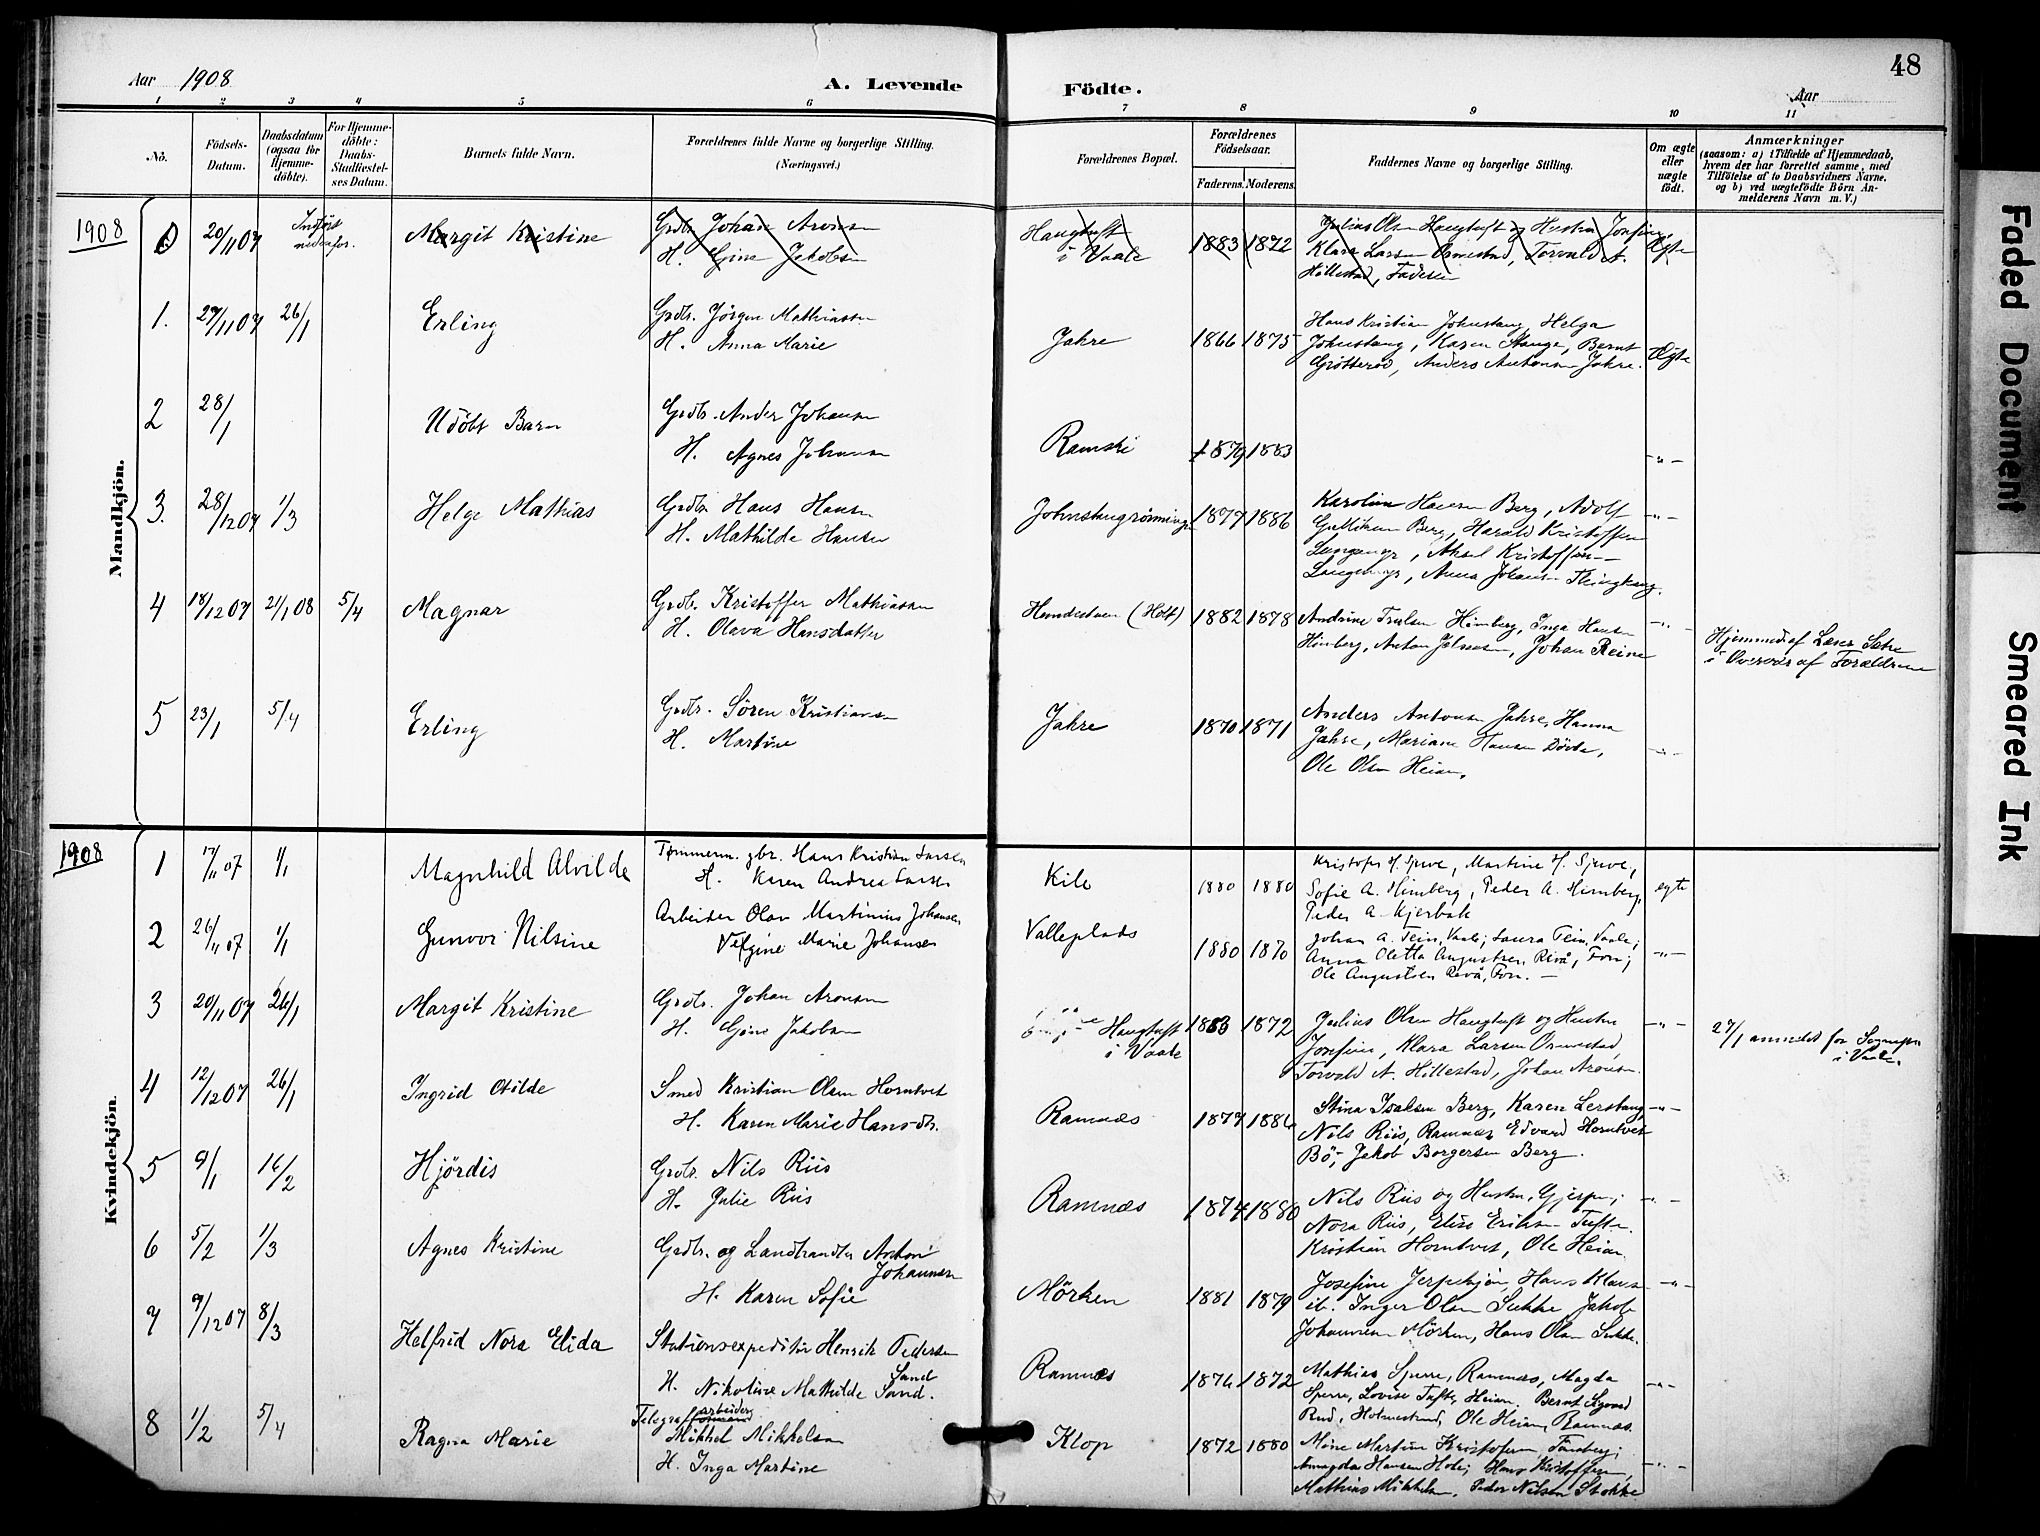 Aar 1908
A. Levende Födte.
Aar
48
1 2 3 4 5 6 7 8 9 10 11
No.
Födsels-
Datum.
Daabsdatum
(ogsaa for
Hjemme-
döbte).
For Hjemme-
döbte:
Daabs-
Stadfæstel-
ses Datum.
Barnets fulde Navn.
Forældrenes fulde Navne og borgerlige Stilling.
(Næringsvei.)
Forældrenes Bopæl.
Forældrenes
Födselsaar.
Faderens. Moderens.
Faddernes Navne og borgerlige Stilling.
Om ægte
eller
uægte
født.
Anmærkninger
(saasom: a) i Tilfælde af Hjemmedaab,
hvem der har forrettet samme, med
Tilföielse af to Daabsvidners Navne,
og b) ved uægtefödte Börn An-
melderens Navn m. V.)
Mandkjön.
1908
20/11 07 Indført nedenfor. Margit Kristine
Grdbr. Johan Aronsen
H. Gine Jakobsen
Haugtuft
i Vaale
1883 1872
Julius Olsen Haugtuft og Hustru Josefine,
Klara Larsen Ormestad, Torvald A.
Hillestad, Faderen
Ægte
1. 27/11 07 26/1 Erling
Grdbr. Jörgen Mathiassen
H. Anna Marie
Jahre
1866 1875
Hans Kristian Johnstang, Helga
Johnstang, Karen Stange, Bernt
Grötteröd, Anders Antonsen Jahre.
Ægte
2 28/1 Udöbt Barn
Grdbr. Anders Johansen
H. Agnes Johansen
Ramski
1879 1883
-"-
3. 28/12 07 1/3 Helge Mathias
Grdbr. Hans Hansen
H. Mathilde Hansen
Johnstangrønningen
1877 1886
Karoline Hansen Berg, Adolf
Gulliksen Berg, Harald Kristoffersen
Langemyr, Aksel Kristoffersen
Langemyr, Anna Johansen
-"-
4 18/12 07 21/1 08 5/4 Magnar
Grdbr. Kristoffer Mathiassen
H. Olava Hansdatter
(Holt)
1882 1878
Andrine Trulsen Himberg, Inga Hansen
Himberg, Anton Johnsen, Johan Reine
-"-
Hjemmed. af Lærer Sætre
i Overvær af Forældrene
5 23/1 5/4 Erling
Grdbr. Sören Kristiansen
H. Martine
Jahre
1870 1871
Anders Antonsen Jahre, Hanna
Jahre, Mariane Hansen
Ole Olsen Heian.
-"-
Kvindekjön.
1908
1 17/11 07 1/1 Magnhild Alvilde
Tømmerm. gbr. Hans Kristian Larsen
H. Karen Andrea Larsen
Kile
1880 1880
Kristofer H. Sjuve, Martine H. Sjuve,
Sofie A. Himberg, Peder A. Himberg,
Peder A. Kjerbak
egte
2 26/11 07 1/1 Gunvor Nilsine
Arbeider Olav Martinius Johansen
Virgine Marie Johansen
Valleplads
1880 1870
Johan A. Tein, Vaale; Laura Tein, Vaale;
Anna Oletta Augustsen Revå, Fon;
Ole Augustsen Revå, Fon. —
-"-
3 20/11 07 26/1 Margit Kristine
Grdbr. Johan Aronsen
H. Gine Jakobsen
Haugtuft
i Vaale
1883 1872
Julius Olsen Haugtuft og Hustru
Josefine, Klara Larsen Ormestad,
Torvald A. Hillestad, Johan Aronsen.
-"-
27/1 anmeldt for Sognepr.
i Vaale.
4 12/12 07 26/1 Ingrid Otilde
Smed Kristian Olsen Horntvet
H. Karen Marie Hansdtr.
Ramnæs
1877 1886
Stina Isaksen Berg, Karen Lerstang
Nils Riis, Ramnæs, Edvard Horntvet
Bö, Jakob Borgersen Berg.
-"-
5 9/1 16/2 Hjördis
Grdbr. Nils Riis
H. Julie Riis
Ramnæs
1874 1880
Nils Riis og Hustru, Gjerpen;
Nora Riis, Elise Eriksen Tufte.
Kristian Horntvet, Ole Heian.
-"-
6 5/2 1/3 Agnes Kristine
Grdbr. og Landhandler Anton
Johannesen
H. Karen Sofie
Mörken
1881 1879
Josefine Jerpekjön, Hans Klausen
ib. Inger Olsen Sukke, Jakob
Johannesen Mörken, Hans Olsen Sukke.
-"-
7 9/12 07 8/3 Helfrid Nora Elida
Stationsexpeditör Henrik Pedersen
Sand
H. Nikoline Mathilde Sand.
Ramnæs
1876 1872
Mathias Sperre, Ramnæs, Magda
Sperre, Lovise Tufte, Heian, Bernt Sigvard
Rud, Holmestrand, Ole Heian, Ramnæs.
-"-
8 1/2 5/4 Ragna Marie
Telegrafarbeider
Mikkel Mikkelsen
H. Inga Martine
Klop
1872 1880
Mine Martine Kristofersen, Tönsberg;
Amagda Hansen Holt; Hans Kristoffersen,
Mathias Mikkelsen, Peder Nilsen Stokke
-"-
Faded Document
Smeared Ink